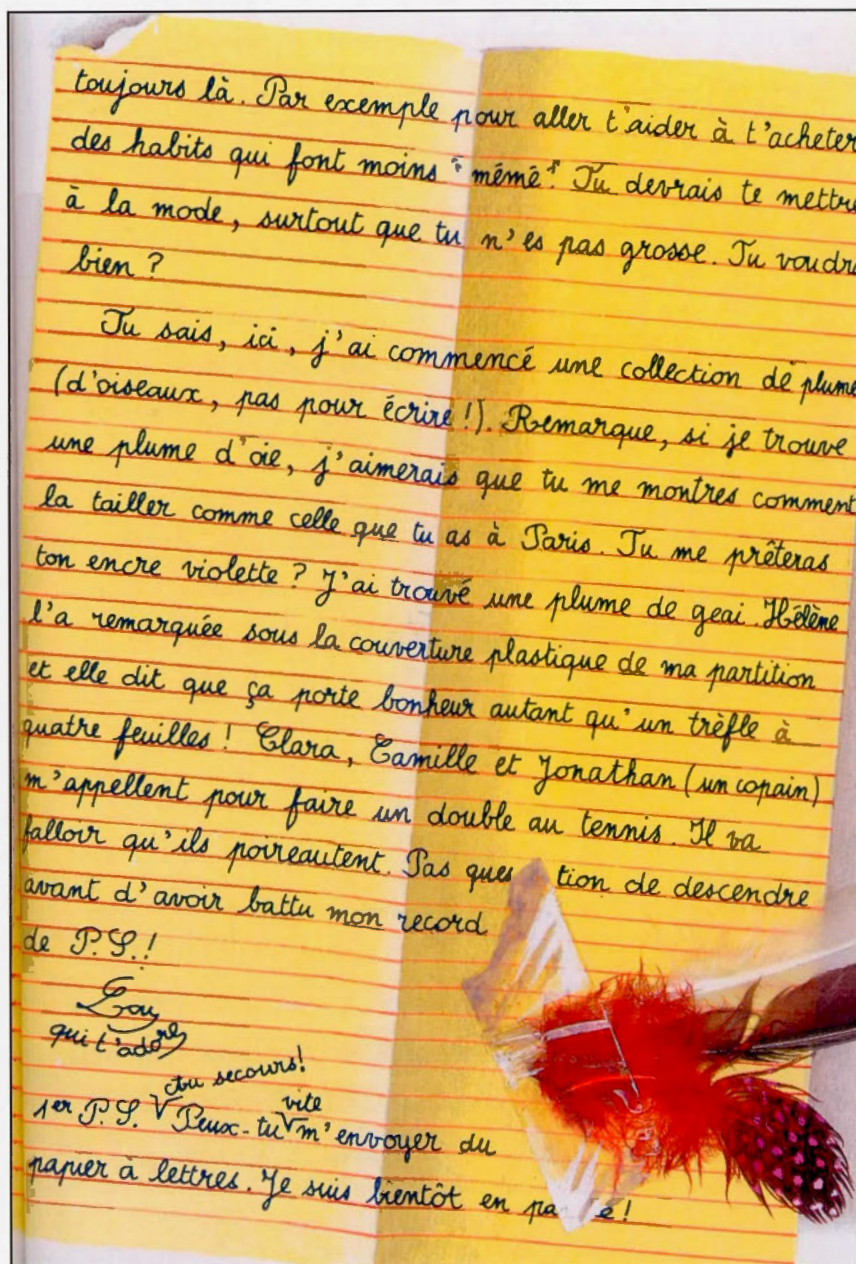 toujours là. Par exemple pour aller t'aider à t'acheter
des habits qui font moins "mémé". Tu devrais te mettre
à la mode, surtout que tu n'es pas grosse. Tu voudra
bien ?
Tu sais, ici, j'ai commencé une collection de plume
(d'oiseaux, pas pour écrire !). Remarque, si je trouve
une plume d'oie, j'aimerais que tu me montres comment
la tailler comme celle que tu as à Paris. Tu me prêteras
ton encre violette ? J'ai trouvé une plume de geai. Hélène
l'a remarquée sous la couverture plastique de ma partition
et elle dit que ça porte bonheur autant qu'un trèfle à
quatre feuilles ! Clara, Camille et Jonathan (un copain)
m'appellent pour faire un double au tennis. Il va
falloir qu'ils poireautent. Pas ques tion de descendre
avant d'avoir battu mon record
de P.S.!
Lou
qui t'adore
Au secours!
vite
1er P.S. Peux-tu m'envoyer du
papier à lettres. Je suis bientôt en pa e !